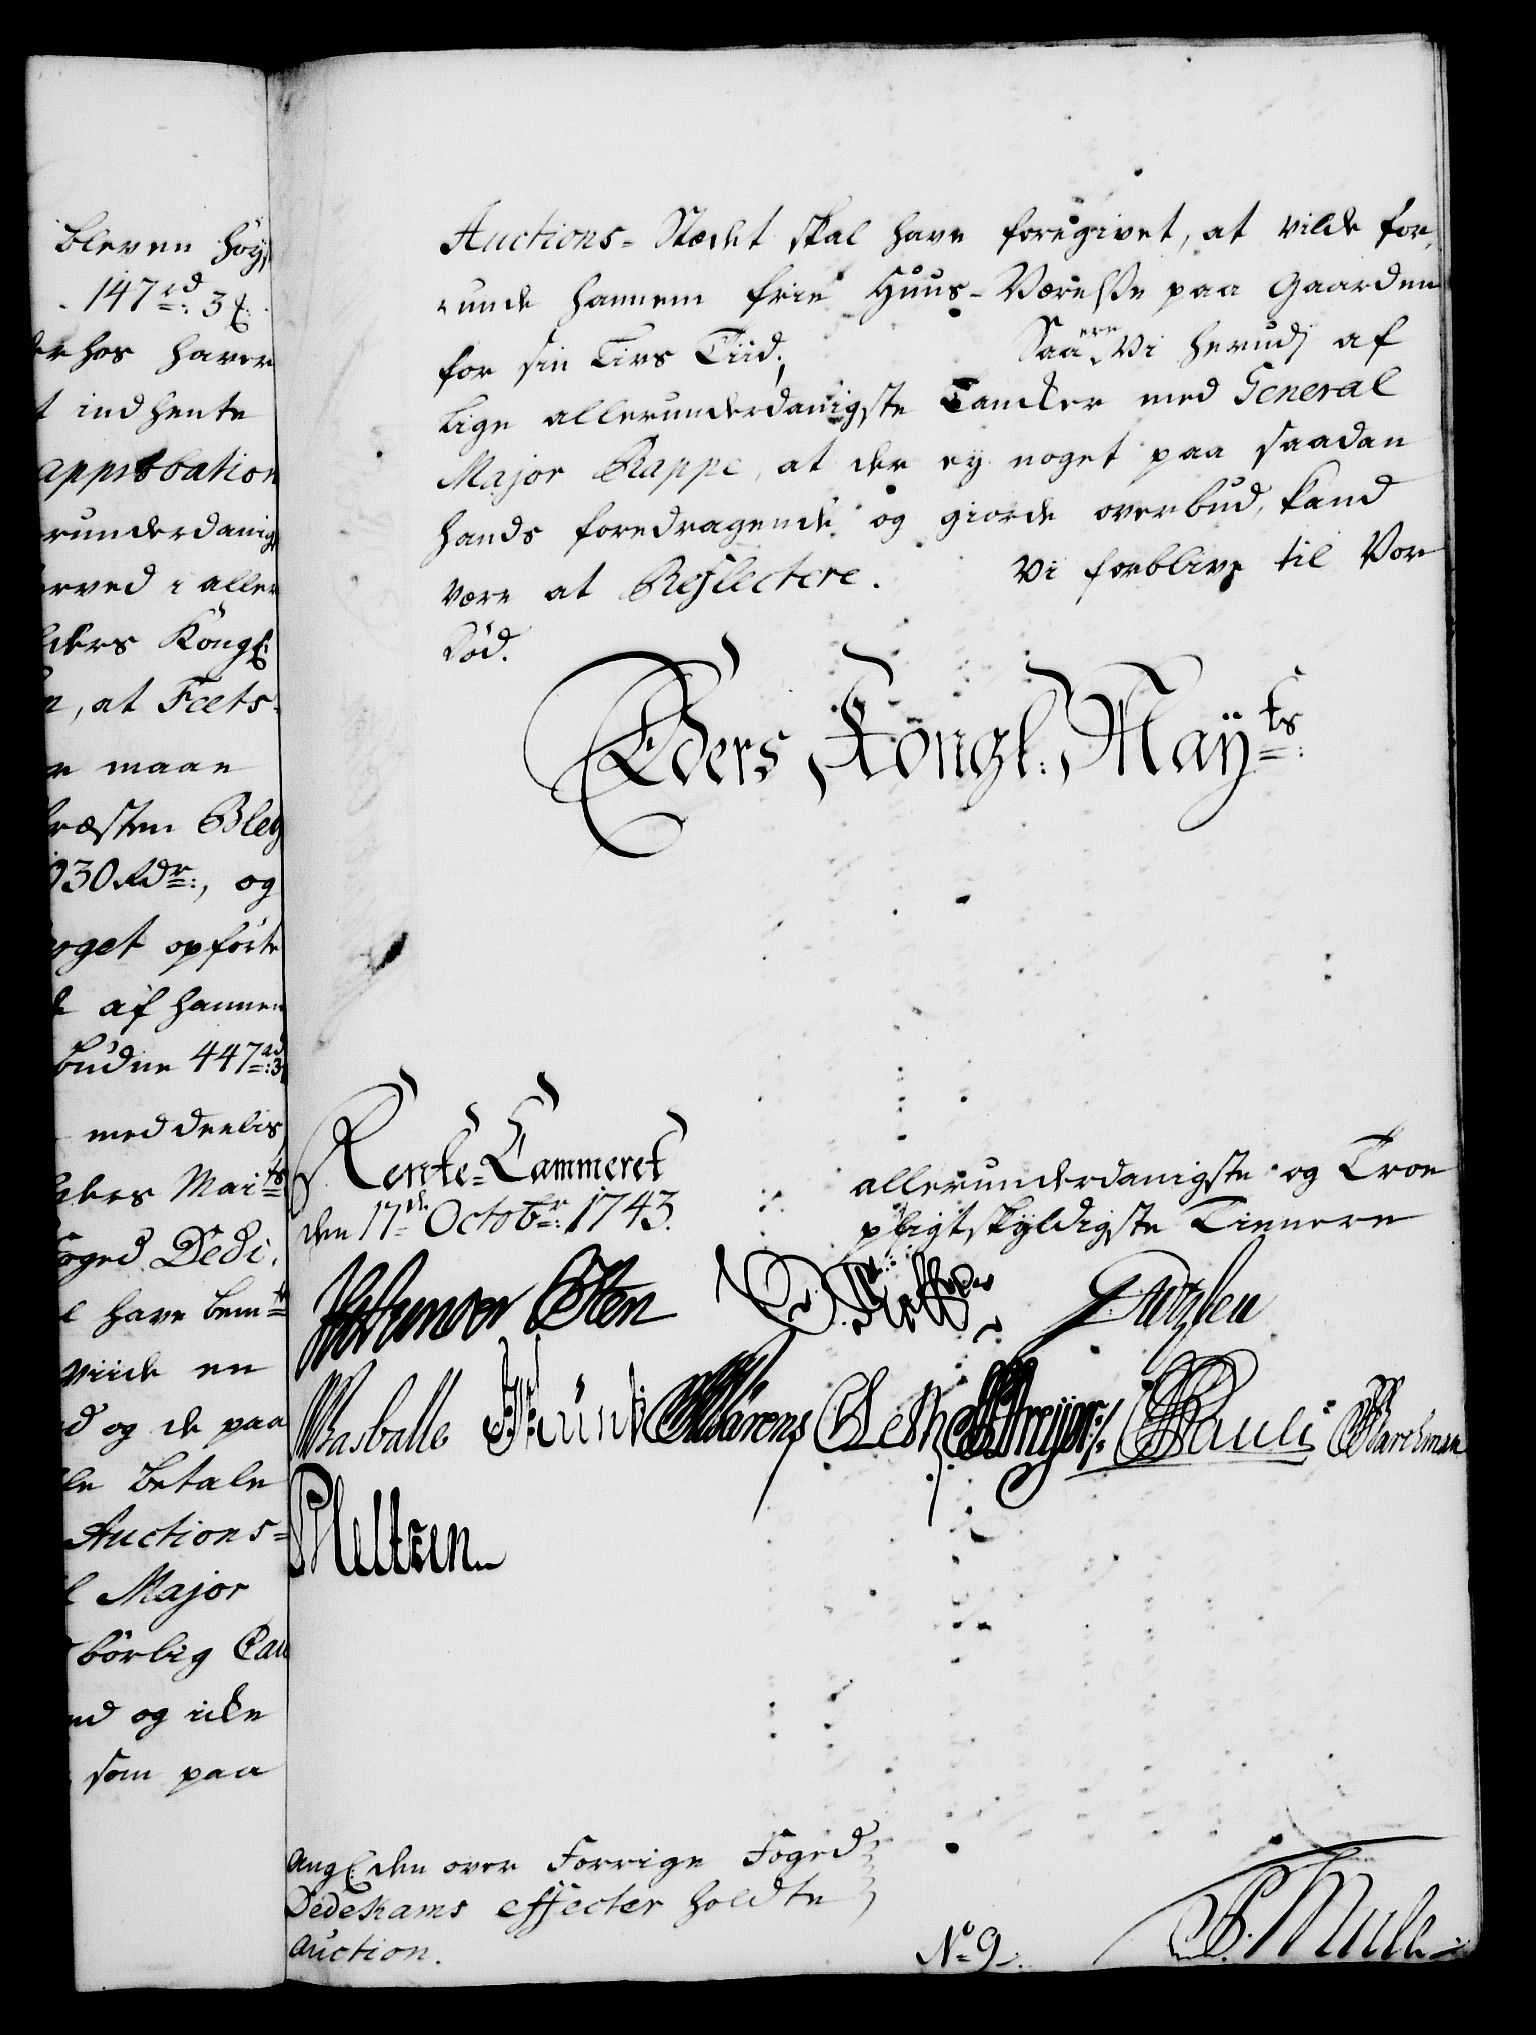 bleven høy
147rd: 3
derhos haver
t indhente
approbation
runderdanig
erved i aller
Eders Kongl:
, at Feets-
maae
Bley
930 Rdr:, og
get opførte
af hannem
budne 447rd: 3
meddeelis
Mai ts
foged Dedi
have bem:te
viide en
d og de paa
betale
Auctions-
Major
børlig Cau
nd og icke
som paa
Auctions-Stædet skal have foregivet, at vilde for,
unde hannem frie Huus-Værelse paa Gaarden
for sin Livs Tiid; Saa ere Vi herudj af
lige allerunderdanigste Tancker med General
Major Rappe, at der ey noget paa saadan
hands foredragende og giorde overbud, kand
være at Reflectere. Vi forblive til Vor
Död.
Eders Kongl: May:ts
Rente-Cammeret
den 17de Octobr: 1743.
allerunderdanigste og Troe
pligtskyldigste Tienere
Osten
Wasballe
Pauli Barchman
Meltzen
angl: den over Forrige Foged
Dedekams effecter holdte
auction.
No 9.
Mule